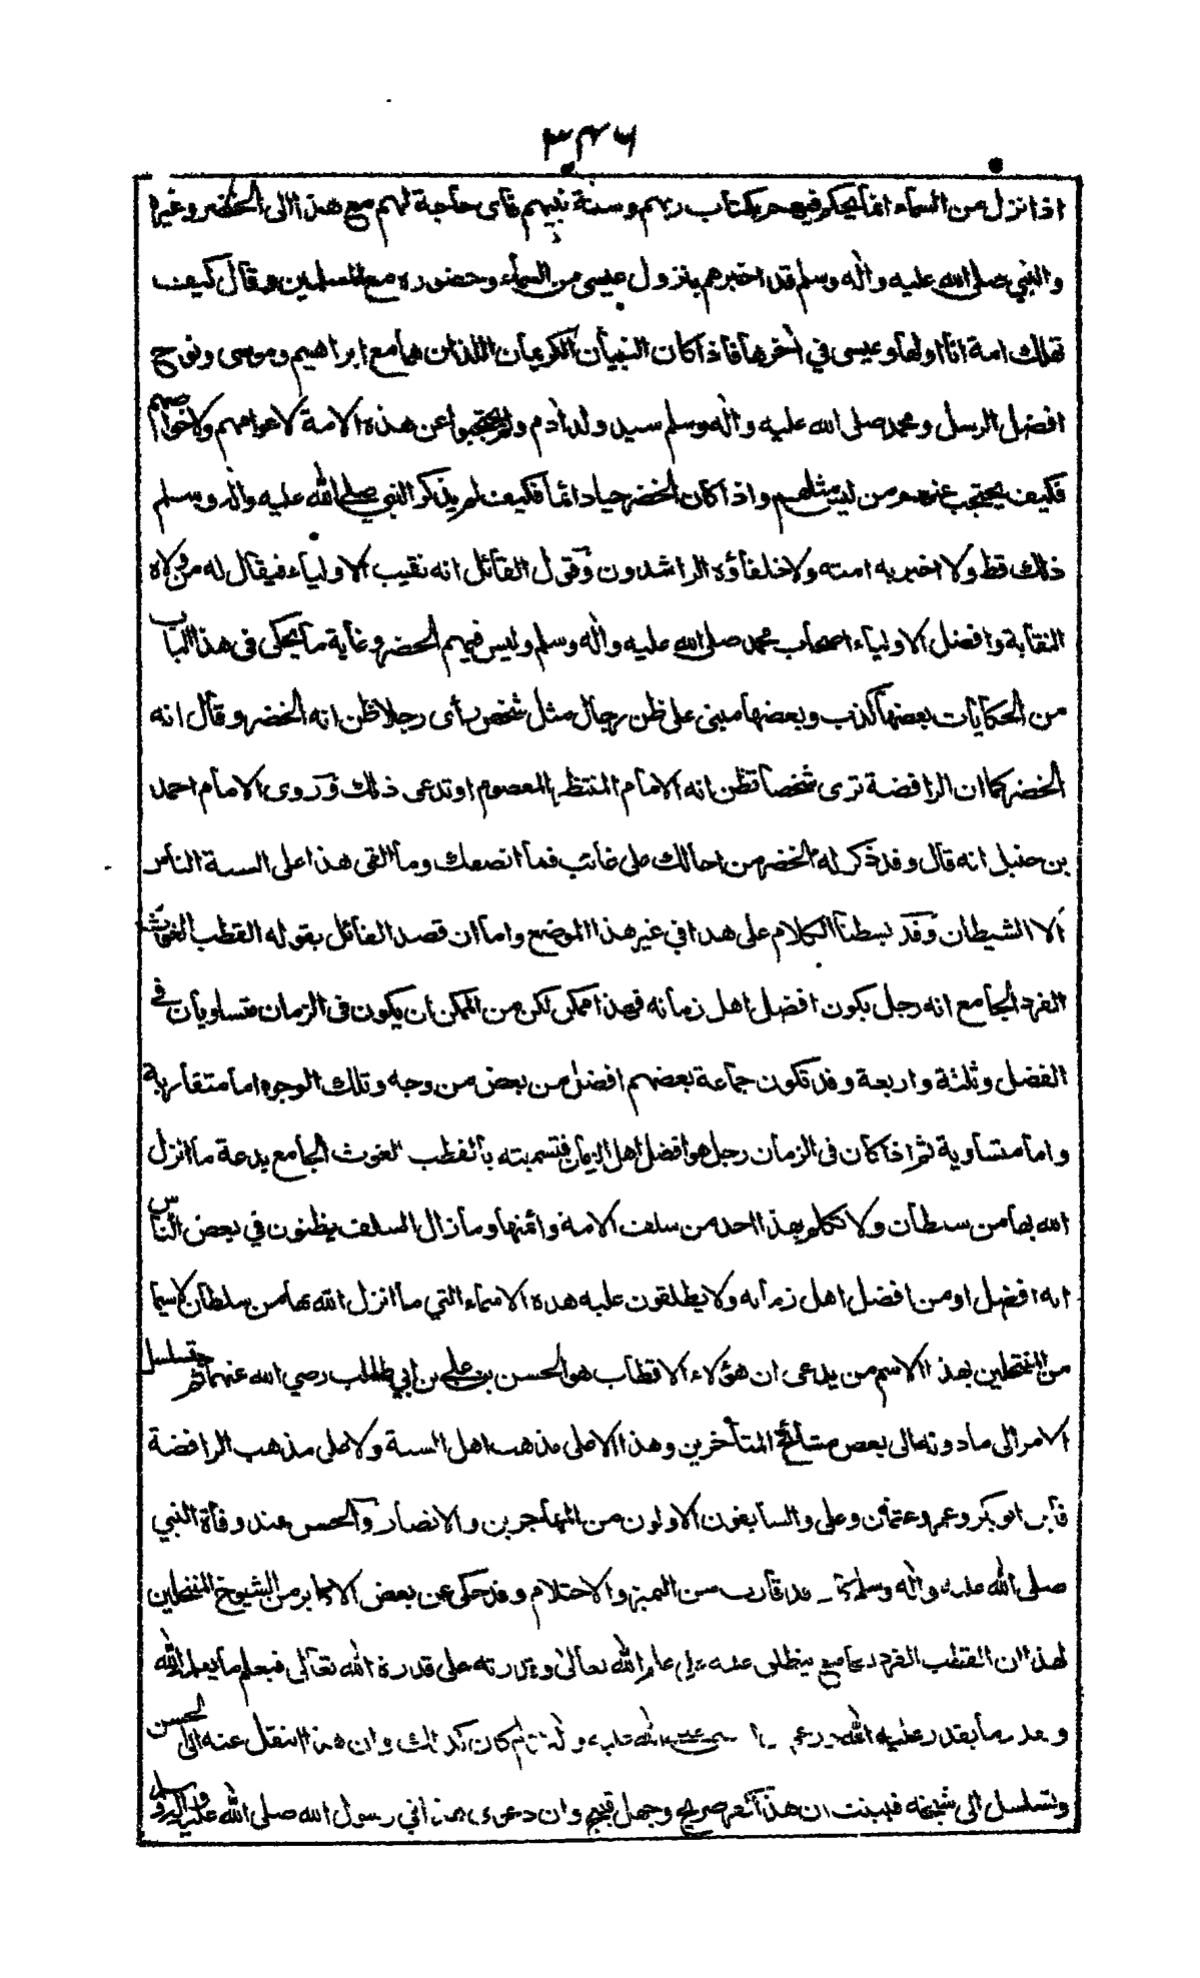 ٣٤٦
اذا نزل من السماء انما يحكم فيهم بكتاب ربهم وسنة نبيهم فاى حاجة لهم مع هذا الى الخضر وغيره
والنبي صلى الله عليه واٰله وسلم قد اخبرهم بنزول عيسى من السماء وحضوره مع المسلمين وقال كيف
تهلك امة انا اولها وعيسى في اٰخرها فاذا كان النبيان الكريمان اللذان هما مع ابراهيم وموسى ونوح
افضل الرسل ومحمد صلى الله عليه واٰله وسلم سيد ولد اٰدم ولم يحتجبوا عن هذه الامة لا عوامهم ولا خواصهم
فكيف يحتجب عنهم من ليس مثلهم واذا كان الخضر حيا دائما فكيف لم يذكر النبي صلى الله عليه واٰله وسلم
ذلك قط ولا اخبر به امته ولا خلفاؤه الراشدون وقول القائل انه نقيب الاولياء فيقال له من ولاه
النقابة وافضل الاولياء اصحاب محمد صلى الله عليه واٰله وسلم وليس فيهم الخضر وغاية ما يحكى فى هذا الباب
من الحكايات بعضها كذب وبعضها مبنى على ظن رجال مثل شخص رأى رجلا ظن انه الخضر وقال انه
الخضر كما ان الرافضة ترى شخصا تظن انه الامام المنتظر المعصوم او تدعى ذلك وروى الامام احمد
بن حنبل انه قال وقد ذكر له الخضر من احالك على غائب فما انصفك وما القى هذا على السنة الناس
الا الشيطان وقد بسطنا الكلام على هذا في غير هذا الموضع واما ان قصد القائل بقوله القطب الغوث
الفرد الجامع انه رجل يكون افضل اهل زمانه فهذا ممكن لكن من الممكن ان يكون فى الزمان متساويان في
الفضل وثلثة واربعة وقد تكون جماعة بعضهم افضل من بعض من وجه وتلك الوجوه اما متقاربة
واما متساوية ثم اذا كان فى الزمان رجل هو افضل اهل الزمان فتسميته بالقطب الغوث الجامع بدعة ما انزل
الله بها من سلطان ولا تكلم بهذا احد من سلف الامة وائمتها وما زال السلف يظنون في بعض الناس
انه افضل او من افضل اهل زمانه ولا يطلقون عليه هذه الاسماء التي ما انزل الله بها من سلطان لا سيما
من المنتحلين بهذا الاسم من يدعى ان هؤلاء الاقطاب هو الحسن بن علي بن ابي طالب رضي الله عنهما ثم يتسلسل
الامر الى ما دونه الى بعض مشائخ المتأخرين وهذا لا على مذهب اهل السنة ولا على مذهب الرافضة
فاين ابو بكر وعمر وعثمان وعلى والسابقون الاولون من المهاجرين والانصار والحسن عند وفاة النبي
صلى الله عليه واٰله وسلم قد قارب سن التميز والاحتلام وقد حكى عن بعض الاكابر من الشيوخ المنتحلين
لهذا ان القطب الفرد الجامع ينطلق علمه على علم الله تعالى وقدرته على قدرة الله تعالى فيعلم ما يعلم الله
ويقدر ما يقدر عليه الله وزعم كان كذلك وان هذا انتقل عنه الى الحسن
وتسلسل الى شيخه فبينت ان هذا كفر صريح وجهل قبيح وان دعوى هذا في رسول الله صلى الله عليه واٰله وسلم